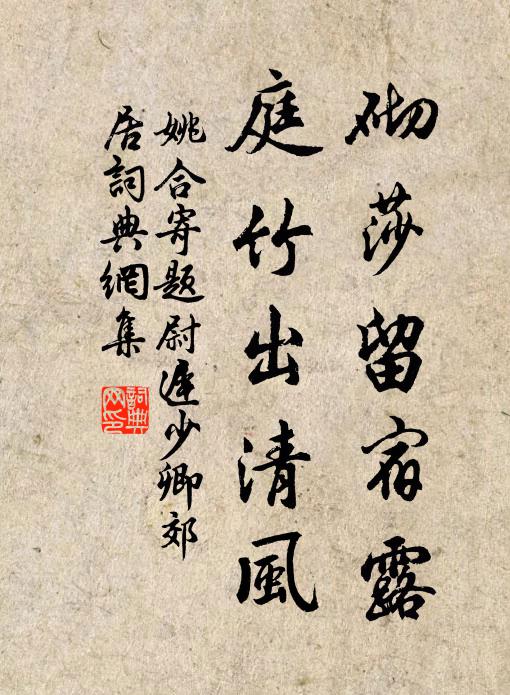 砌莎留宿露
庭竹出清風
姚合寄題尉遲少卿郊
居詞典網集
詞典网印